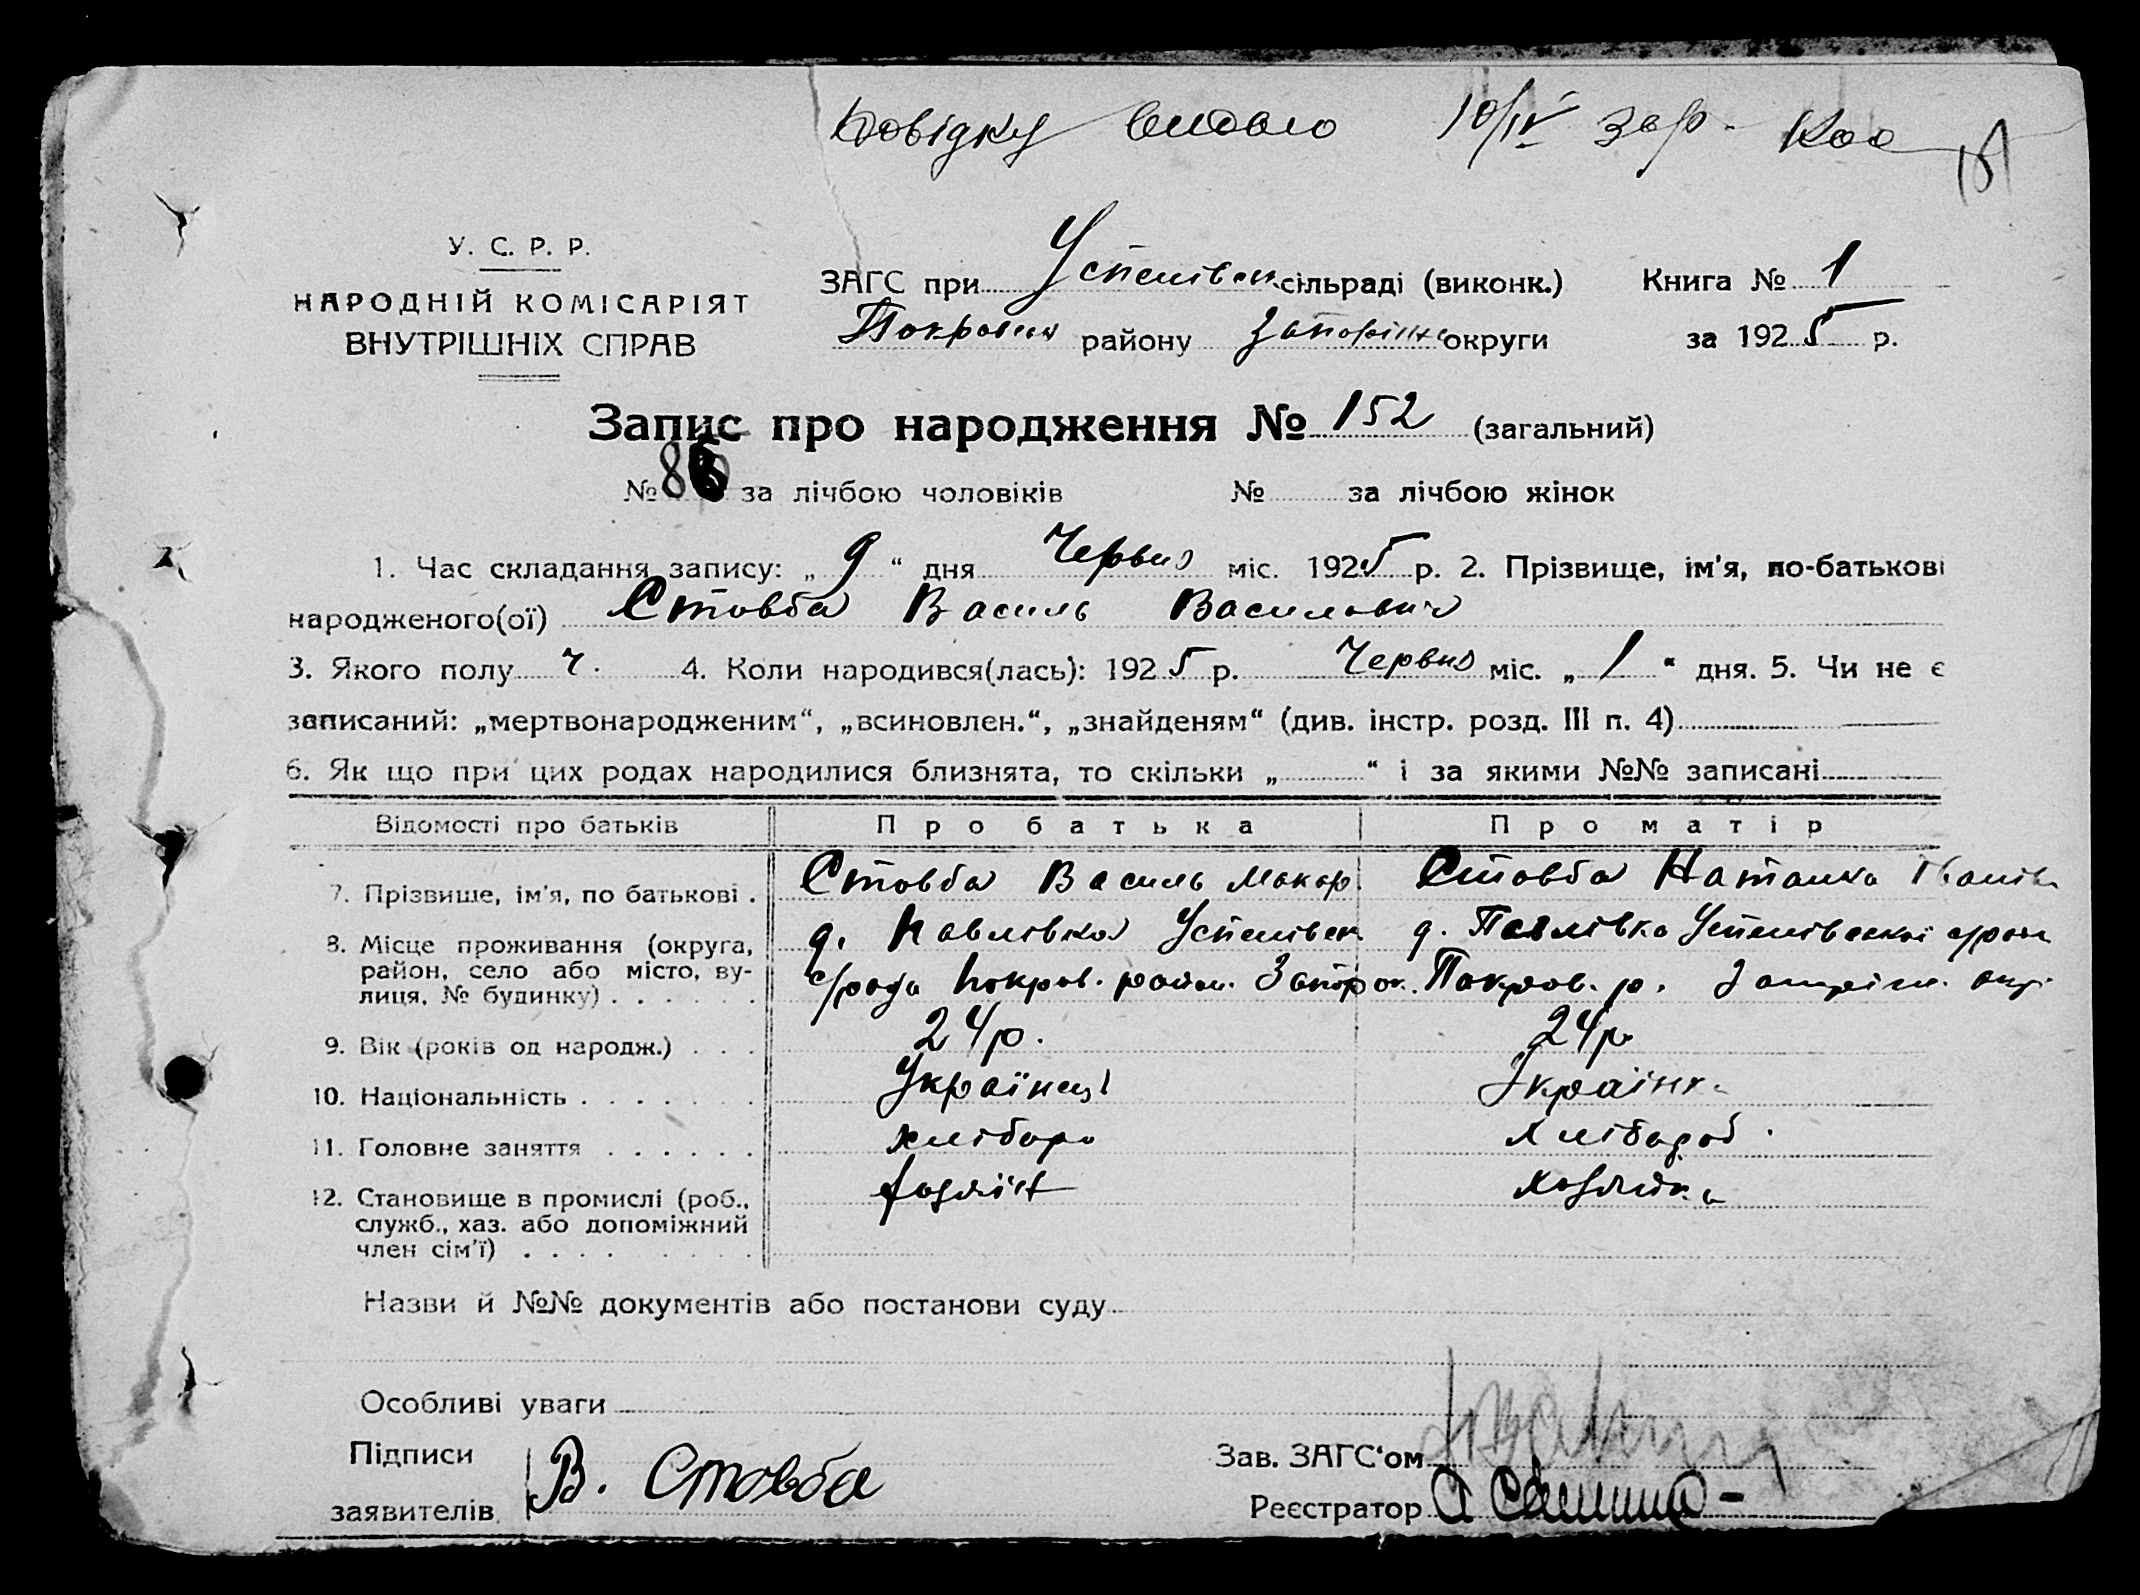 Довідку видано 10/IV
У. С. Р. Р.
НАРОДНІЙ КОМІСАРІЯТ
ВНУТРІШНІХ СПРАВ
ЗАГС при Успенівськ сільраді (виконк.) Книга № 1
Покровськ району Запоріжс округи за 1925 р.
Запис про народження № 152 (загальний)
№ 86 за лічбою чоловіків № за лічбою жінок
1. Час складання запису: „ 9 “ дня Червня міс. 1925 р. 2. Прізвище, ім'я, по-батькові
народженого(ої) Стовба Василь Василович
3. Якого полу ч. 4. Коли народився(лась): 1925 р. Червня міс. „ 1 “ дня. 5. Чи не є
записаний: „мертвонародженим“, „всиновлен.“, „знайденям“ (див. інстр. розд. III п. 4)
6. Як що при цих родах народилися близнята, то скільки „ “ і за якими №№ записані
Відомості про батьків Про батька Про матір
7. Прізвище, ім'я, по батькові . Стовба Василь Макар. Стовба Наталка Іванів
8. Місце проживання (округа, район, село або місто, вулиця, № будинку) . . . . . .
д. Павлівка Успенівськ д. Павлівка Успенівської
Покров. район. Запорож. Покров. р. Запоріж. окр.
9. Вік (років од народж.) . . . 24 р. 24 р.
10. Національність . . . . . . . Українець Українка
11. Головне заняття . . . . . . хлібороб хлібороб.
12. Становище в промислі (роб., служб., хаз. або допоміжний член сім'ї) . . . . . . . .
хозяїн хозяйка
Назви й №№ документів або постанови суду
Особливі уваги
Підписи
заявителів В. Стовба
Зав. ЗАГС'ом
Реєстратор